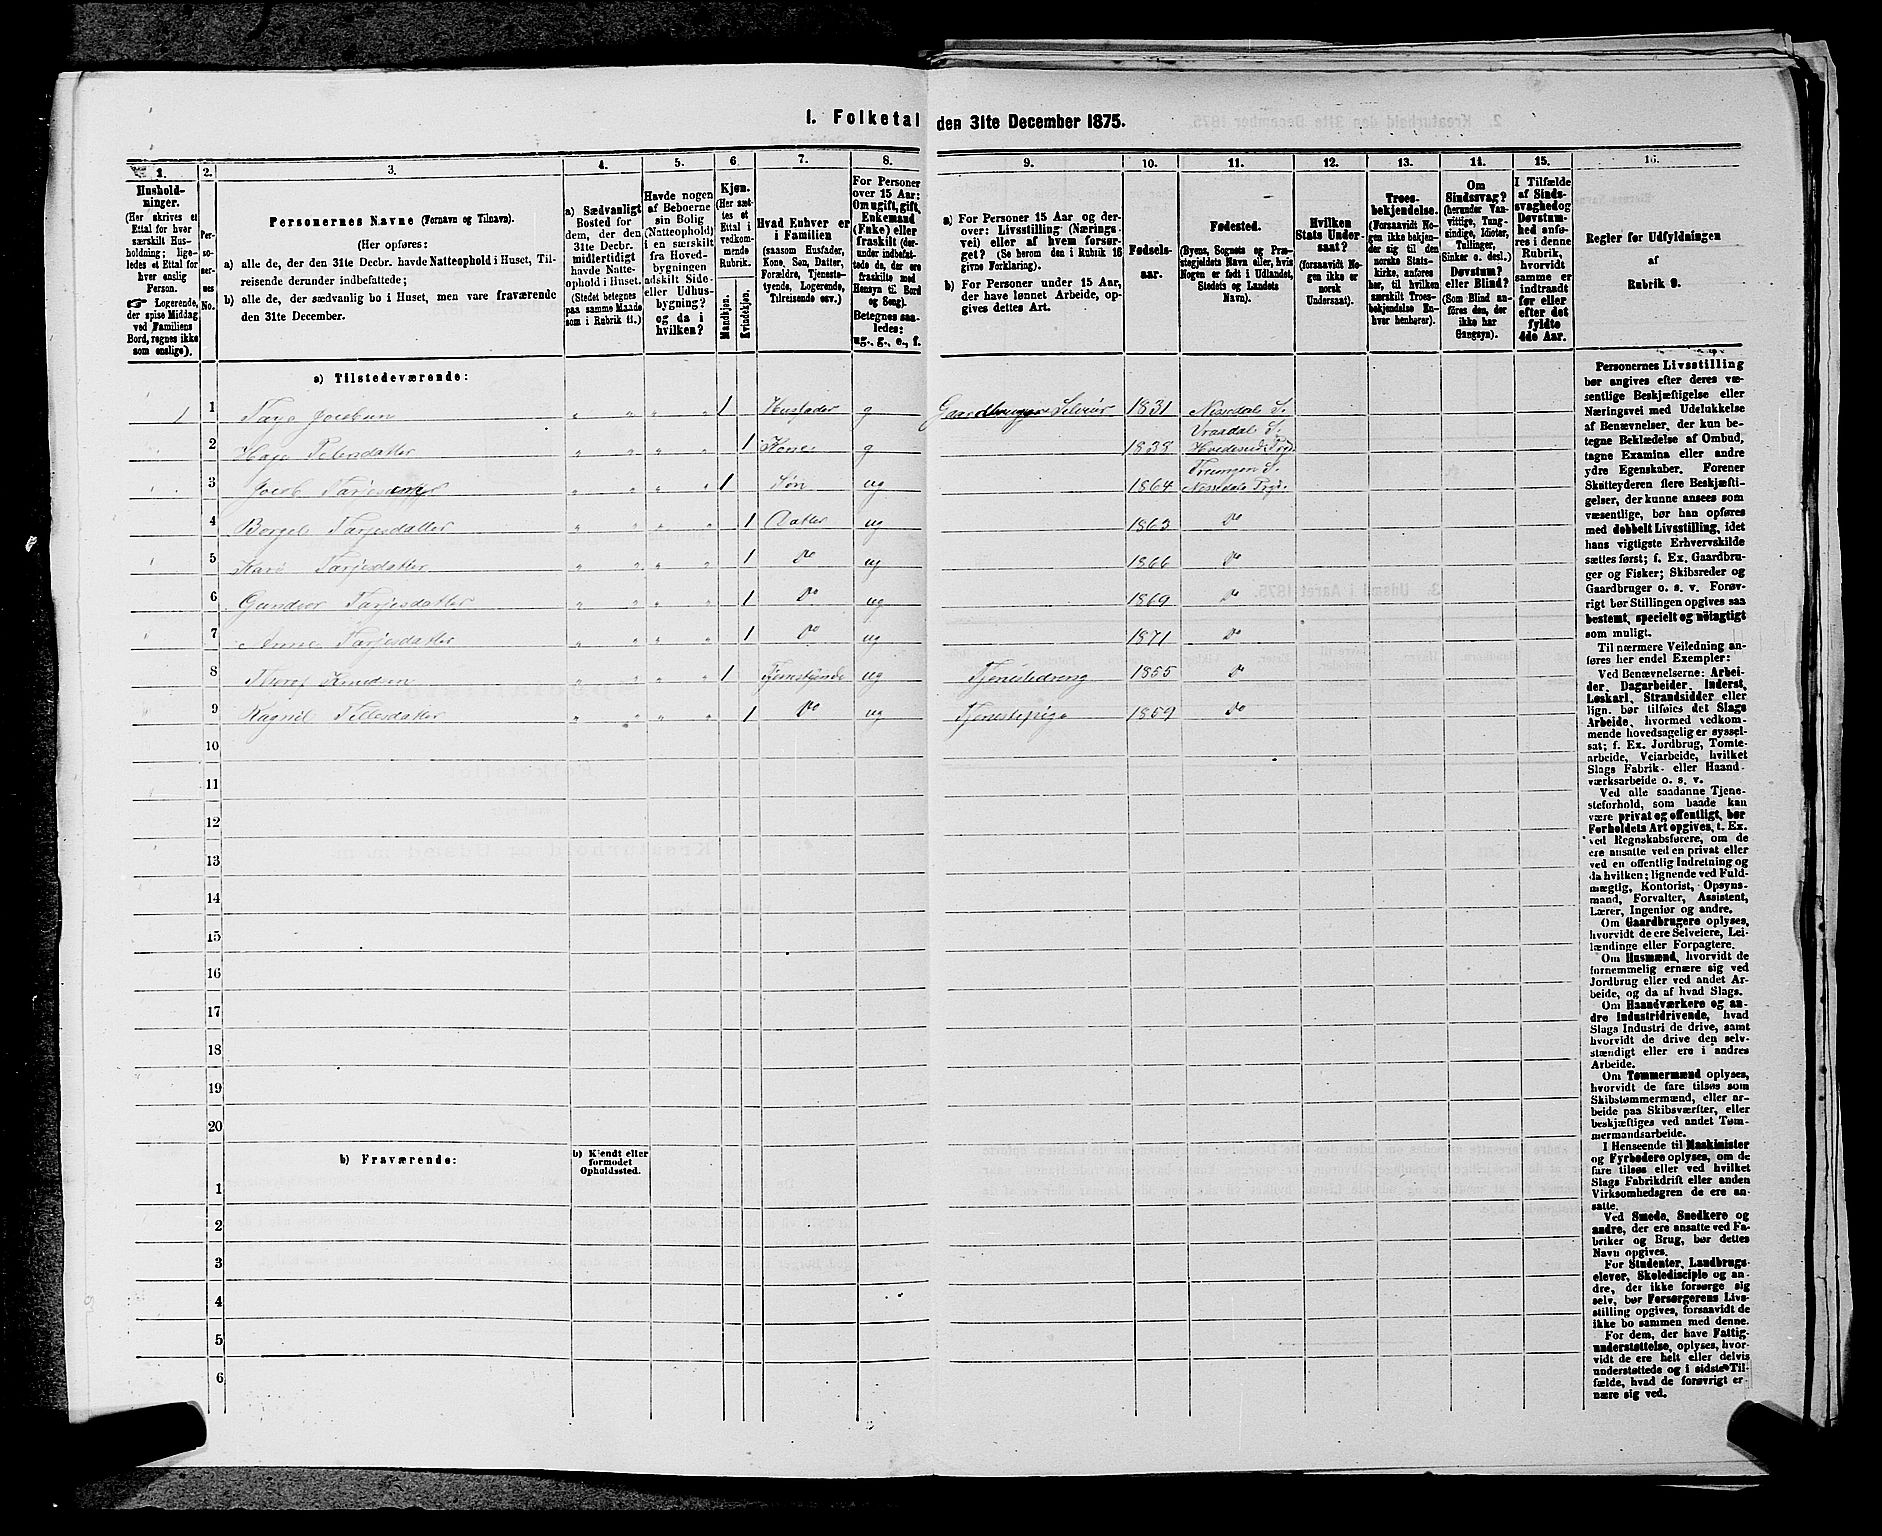 I. Folketal den 31te December 1875.
1. 2. 3. 4. 5. 6 7. 8. 9. 10. 11. 12. 13. 14. 15. 16.
Hushold-
ninger.
(Her skrives et
Ettal for hver
særskilt Hus-
holdning; lige-
ledes et Ettal for
hver enslig
Person.
☞ Logerende,
der spise Middag
ved Familiens
Bord, regnes ikke
som enslige).
Per-
so-
ner-
nes
No.
Personernes Navne (Fornavn og Tilnavn).
(Her opføres:
a) alle de, der den 31te Decbr. havde Natteophold i Huset, Til-
reisende derunder indbefattede;
b) alle de, der sædvanlig bo i Huset, men vare fraværende
den 31te December.
a) Sædvanligt
Bosted for
dem, der den
31te Decbr.
midlertidigt
havde Natte-
ophold i Huset.
(Stedet betegnes
paa samme Maade
som i Rubrik 11.)
Havde nogen
af Beboerne
sin Bolig
(Natteophold)
i en særskilt
fra Hoved-
bygningen
adskilt Side-
eller Udhus-
bygning?
og da i
hvilken?
Kjøn.
(Her sæt-
tes et
Ettal i
vedkom-
mende
Rubrik.
Mandkjøn.
Kvindekjøn.
Hvad Enhver er
i Familien
(saasom Husfader,
Kone, Søn, Datter,
Forældre, Tjeneste-
tyende, Logerende,
Tilreisende osv.)
For Personer
over 15 Aar:
Om ugift, gift,
Enkemand
(Enke) eller
fraskilt (der-
under indbefat-
tede de, der ere
fraskilte med
Hensyn til Bord
og Seng).
Betegnes saa-
ledes:
ug., g., e., f.
a) For Personer 15 Aar og der-
over: Livsstilling (Nærings-
vei) eller af hvem forsør-
get? (Se herom den i Rubrik 16
givne Forklaring).
b) For Personer under 15 Aar,
der have lønnet Arbeide, op-
gives dettes Art.
Fødsels-
aar.
Fødested.
(Byens, Sognets og Præ-
stegjeldets Navn eller, hvis
Nogen er født i Udlandet,
Stedets og Landets
Navn).
Hvilken
Stats Under-
saat?
(forsaavidt No-
gen ikke er
norsk
Undersaat).
Troes-
bekjendelse.
(Forsaavidt No-
gen ikke bekjen-
der sig til den
norske Stats-
kirke, anføres
her, til hvilken
særskilt Troes-
bekjendelse En-
hver henhører).
Om
Sindssvag?
(herunder Van-
vittige, Tung-
sindige, Idioter,
Tullinger,
Sinker o. desl.)
Døvstum?
eller Blind?
(Som Blind an-
føres den, der
ikke har
Gangsyn).
I Tilfælde
af Sinds-
svaghed og
Døvstum-
hed anfø-
res i denne
Rubrik,
hvorvidt
samme er
indtraadt
før eller
efter det
fyldte
4de Aar.
Regler for Udfyldningen
af
Rubrik 9.
a) Tilstedeværende:
1 1 Tarje Jocobsen " " " " 1 Husfader g Gaardbruger Selveier 1831 Nissedal S.
Vraadal S.
2 Tellevsdatter " " " " 1 Kone g 1838 Hvideseid Prgj.
Treungen S.
3 Jocob Tarjesen " " " " 1 Søn ug 1864 Nissedals Prgj.
4 Borgel Tarjesdatter " " " " 1 Datter ug 1863 Do
5 Kari Tarjesdatter " " " " 1 Do ug 1866 Do
6 Gundvor Tarjesdatter " " " " 1 Do ug 1869 Do
7 Anne Tarjesdatter " " " " 1 Do ug 1871 Do
8 Knudsen " " " " 1 Tjenestyende ug Tjenestedreng 1855 Do
9 Ragnil Tellefsdatter " " " " 1 Do ug Tjenestepige 1859 Do
10
11
12
13
14
15
16
17
18
19
20
b) Fraværende:
b) Kjendt eller
formodet
Opholdssted.
1
2
3
4
5
6
Personernes Livsstilling
bør angives efter deres væ-
sentlige Beskjæftigelse eller
Næringsvei med Udelukkelse
af Benævnelser, der kun be-
tegne Beklædelse af Ombud,
tagne Examina eller andre
ydre Egenskaber. Forener
Skatteyderen flere Beskjæfti-
gelser, der kunne ansees som
væsentlige, bør han opføres
med dobbelt Livsstilling, idet
hans vigtigste Erhvervskilde
sættes først; f. Ex. Gaardbru-
ger og Fisker; Skibsreder og
Gaardbruger o. s. v. Forøv-
rigt bør Stillingen opgives saa
bestemt, specielt og nøiagtigt
som muligt.
Til nærmere Veiledning an-
føres her endel Exempler:
Ved Benævnelserne: Arbei-
der, Dagarbeider, Inderst,
Løskarl, Strandsidder eller
lign. bør tilføies det Slags
Arbeide, hvormed vedkom-
mende hovedsagelig er syssel-
sat; f. Ex. Jordbrug, Tomte-
arbeide, Veiarbeide, hvilket
Slags Fabrik- eller Haand-
værksarbeide o. s. v.
Ved alle saadanne Tjene-
steforhold, som baade kan
være privat og offentligt, bør
Forholdets Art opgives, t. Ex.
ved Regnskabsførere, om de
ere ansatte ved en privat eller
ved en offentlig Indretning og
da hvilken; lignende ved Fuld-
mægtig, Kontorist, Opsyns-
mand, Forvalter, Assistent,
Lærer, Ingeniør og andre.
Om Gaardbrugere oplyses,
hvorvidt de ere Selveiere, Lei-
lændinge eller Forpagtere.
Om Husmænd, hvorvidt de
fornemmelig ernære sig ved
Jordbrug eller ved andet Ar-
beide, og da af hvad Slags.
Om Haandværkere og an-
dre Industridrivende, hvad
Slags Industri de drive, samt
hvorvidt de drive den selv-
stændigt eller ere i andres
Arbeide.
Om Tømmermænd oplyses,
hvorvidt de fare tilsøs som
Skibstømmermænd, eller ar-
beide paa Skibsværfter, eller
beskjæftiges ved andet Tøm-
mermandsarbeide.
I Henseende til Maskinister
og Fyrbødere oplyses, om de
fare tilsøs eller ved hvilket
Slags Fabrikdrift eller anden
Virksomhedsgren de ere an-
satte.
Ved Smede, Snedkere og
andre, der ere ansatte ved Fa-
briker og Brug, bør dettes
Navn opgives.
For Studenter, Landbrugs-
elever, Skoledisciple og an-
dre, der ikke forsørge sig
selv, bør Forsørgerens Livs-
stilling opgives, forsaavidt de
ikke bo sammen med denne.
For dem, der have Fattig-
understøttelse, oplyses, hvor-
vidt de ere helt eller delvis
understøttede og i sidste Til-
fælde, hvad de forøvrigt er-
nære sig ved.